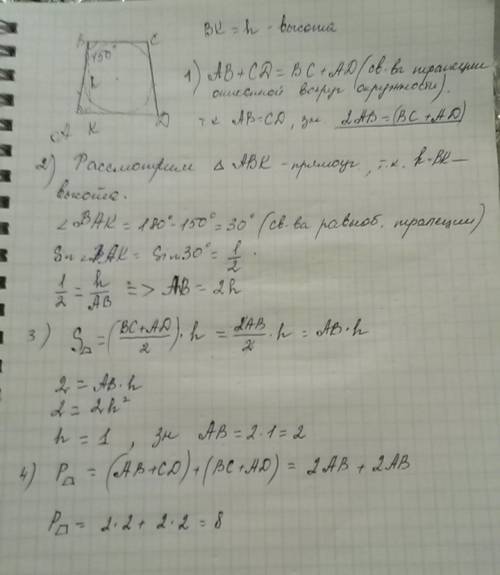 BK = h - высота
B C
150°
h
A K D
1) AB + CD = BC + AD (св-ва трапеции
описанной вокруг окружности).
т.к AB = CD, зн 2AB = (BC + AD)
2) Рассмотрим △ ABK - прямоуг, т.к. h = BK —
высота.
∠BAK = 180° - 150° = 30° (св-ва равноб. трапеции)
Sin ∠BAK = Sin 30° = 1/2.
1/2 = h/AB => AB = 2h
3) S = ((BC + AD)/2) · h = 2AB/2 · h = AB · h
2 = AB · h
2 = 2h²
h = 1, зн AB = 2·1 = 2
4) P = (AB + CD) + (BC + AD) = 2AB + 2AB
P = 2·2 + 2·2 = 8